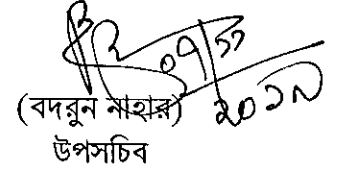 ০৭/১১
২০১৯
(বদরুন নাহার)
উপসচিব